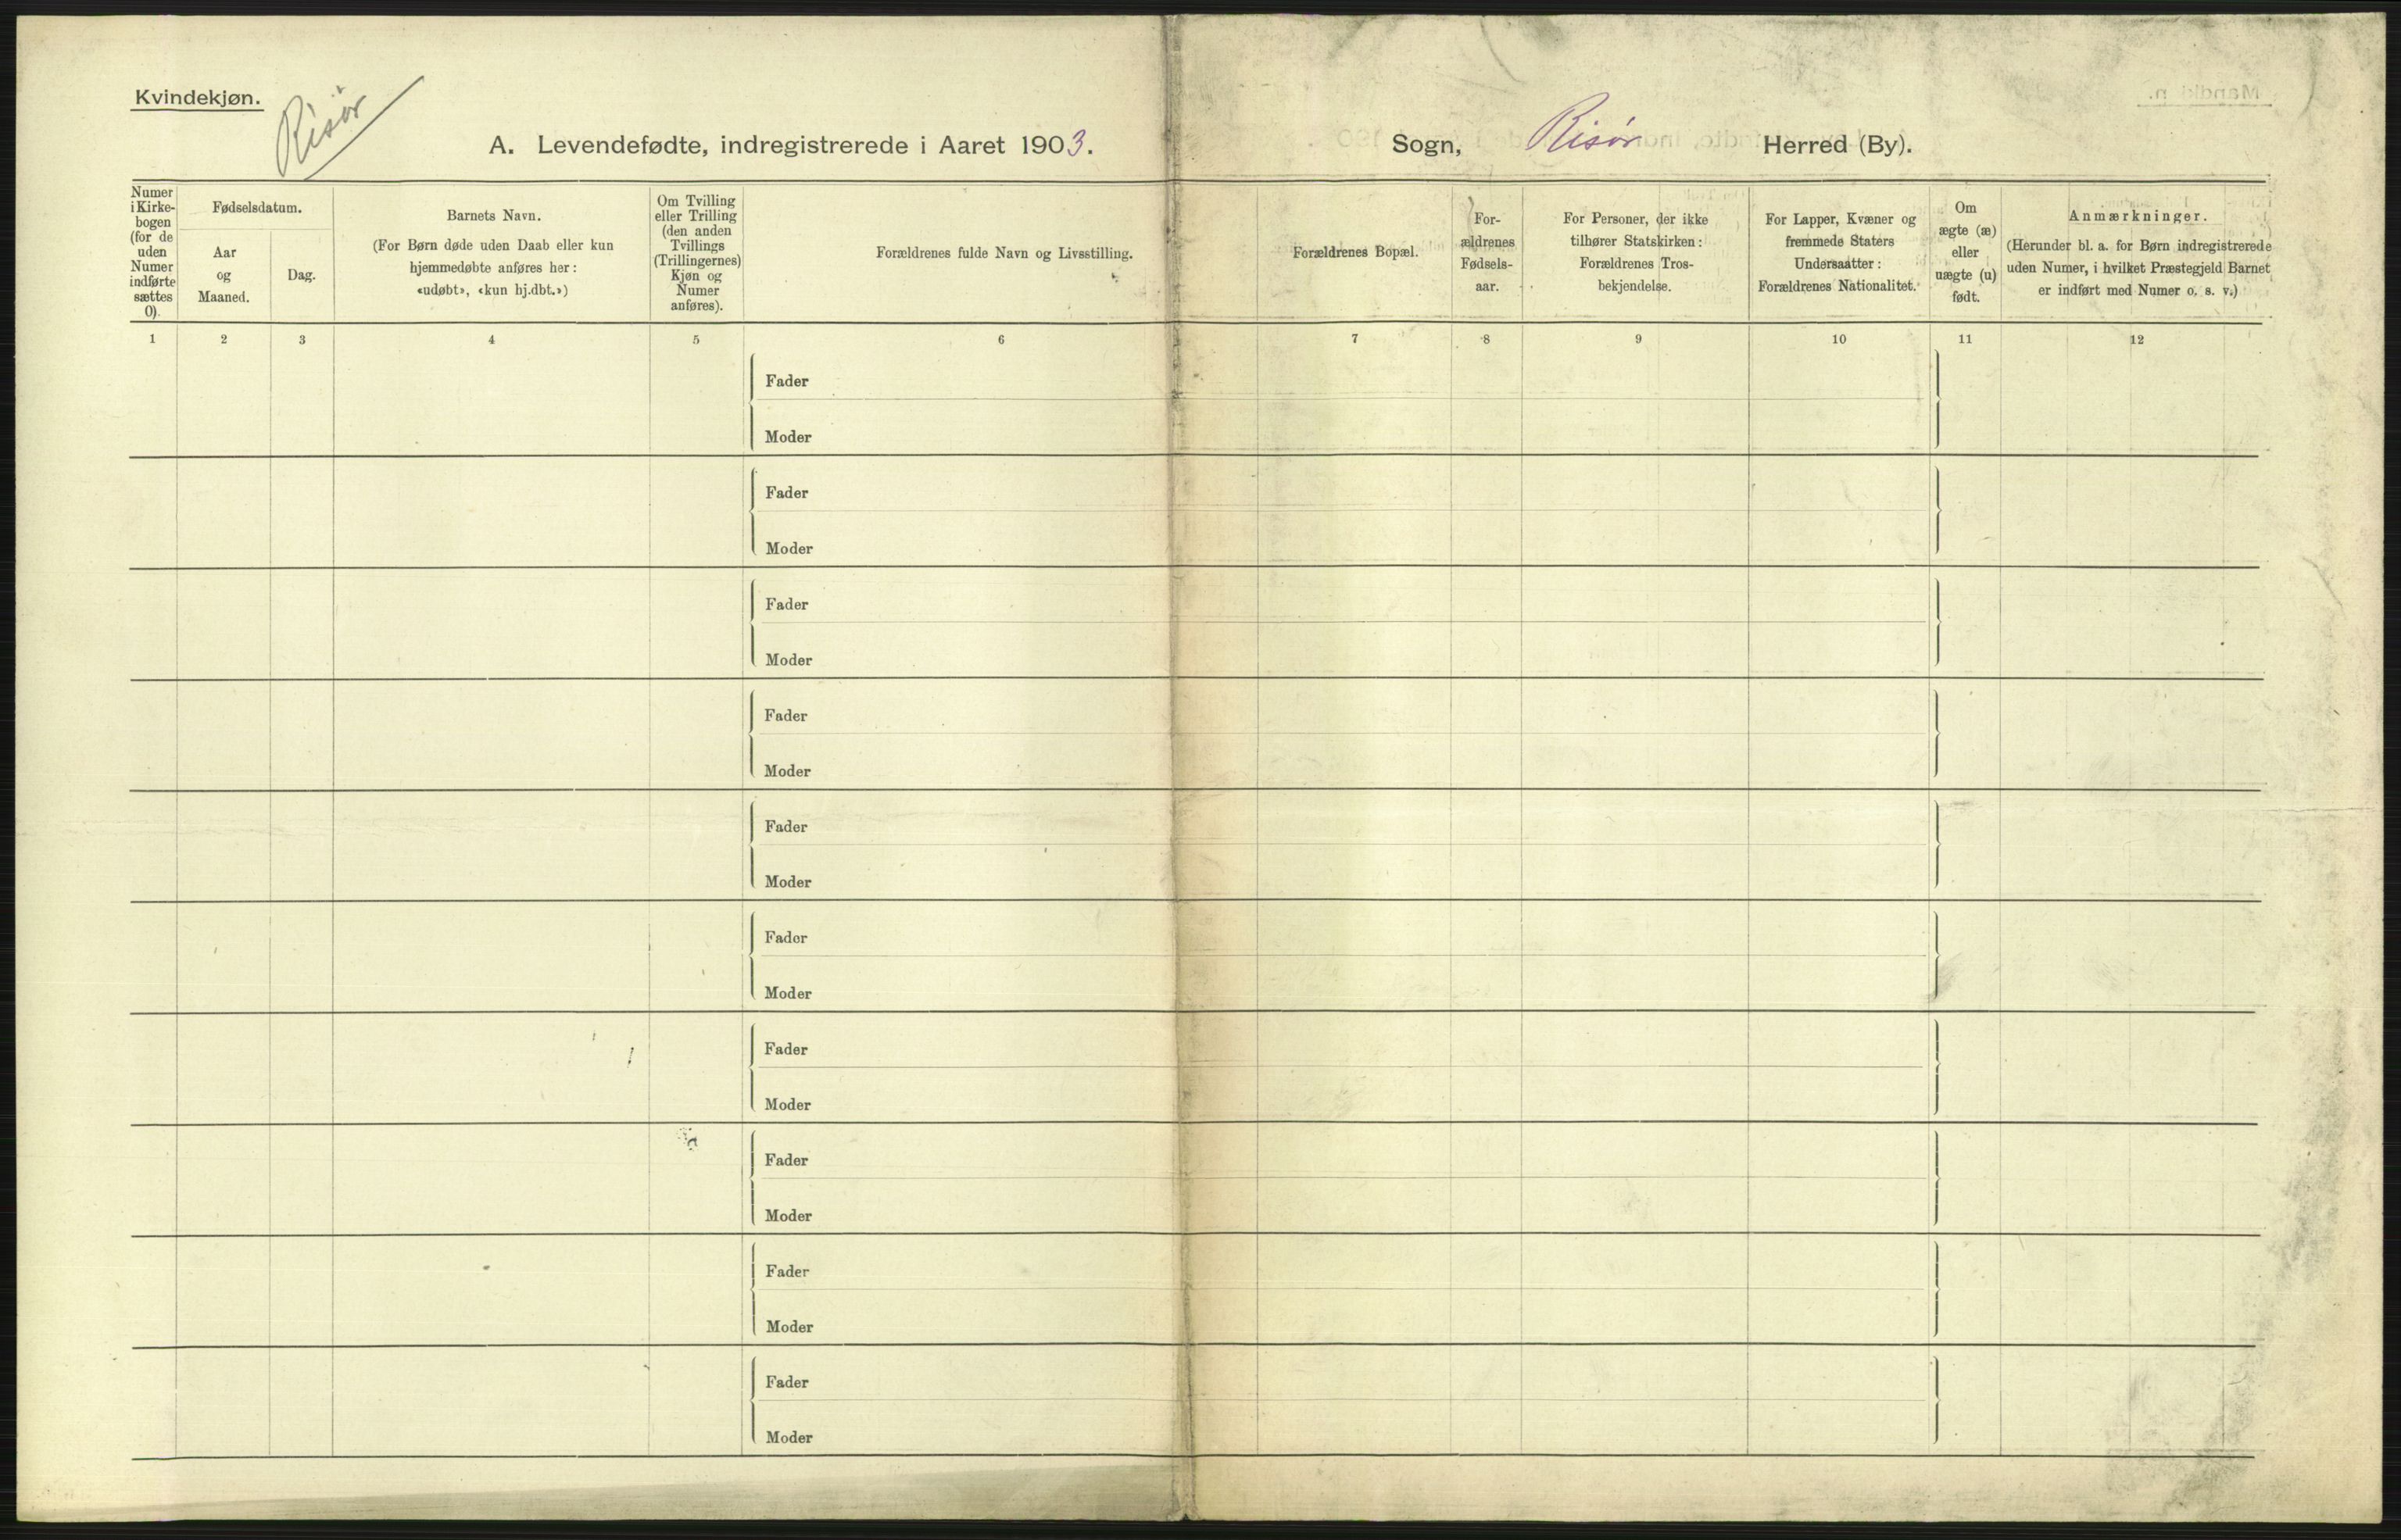 Kvindekjøn.
Risør
A. Levendefødte, indregistrerede i Aaret 1903. Sogn, Risør Herred (By).
Numer
i Kirke-
bogen
(for de
uden
Numer
indførte
sættes
0).
Fødselsdatum.
Aar
og
Maaned.
Dag.
Barnets Navn.
(For Børn døde uden Daab eller kun
hjemmedøbte anføres her:
«udøbt», «kun hj.dbt.»)
Om Tvilling
eller Trilling
(den anden
Tvillings
(Trillingernes)
Kjøn og
Numer
anføres).
Forældrenes fulde Navn og Livsstilling.
Forældrenes Bopæl.
For-
ældrenes
Fødsels-
aar.
For Personer, der ikke
tilhører Statskirken:
Forældrenes Tros-
bekjendelse.
For Lapper, Kvæner og
fremmede Staters
Undersaatter:
Forældrenes Nationalitet.
Om
ægte (æ)
eller
uægte (u)
født.
Anmærkninger.
(Herunder bl. a. for Børn indregistrerede
uden Numer, i hvilket Præstegjeld Barnet
er indført med Numer o. s. v.)
1 2 3 4 5 6 7 8 9 10 11 12
Fader
Moder
Fader
Moder
Fader
Moder
Fader
Moder
Fader
Moder
Fader
Moder
Fader
Moder
Fader
Moder
Fader
Moder
Fader
Moder